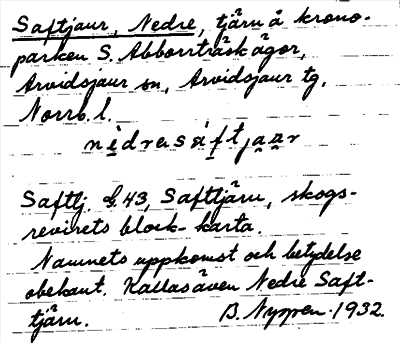 Saftjaur, Nedre, tjärn å krono-
parken S. Abborrträsk ägor,
Arvidsjaur sn, Arvidsjaur tg,
Norrb. l.
Saftlj. 43, Safttjärn, skogs-
revirets block-karta.
Namnets uppkomst och betydelse
obekant. Kallas även Nedre Saft-
tjärn. B. Nygren 1932.